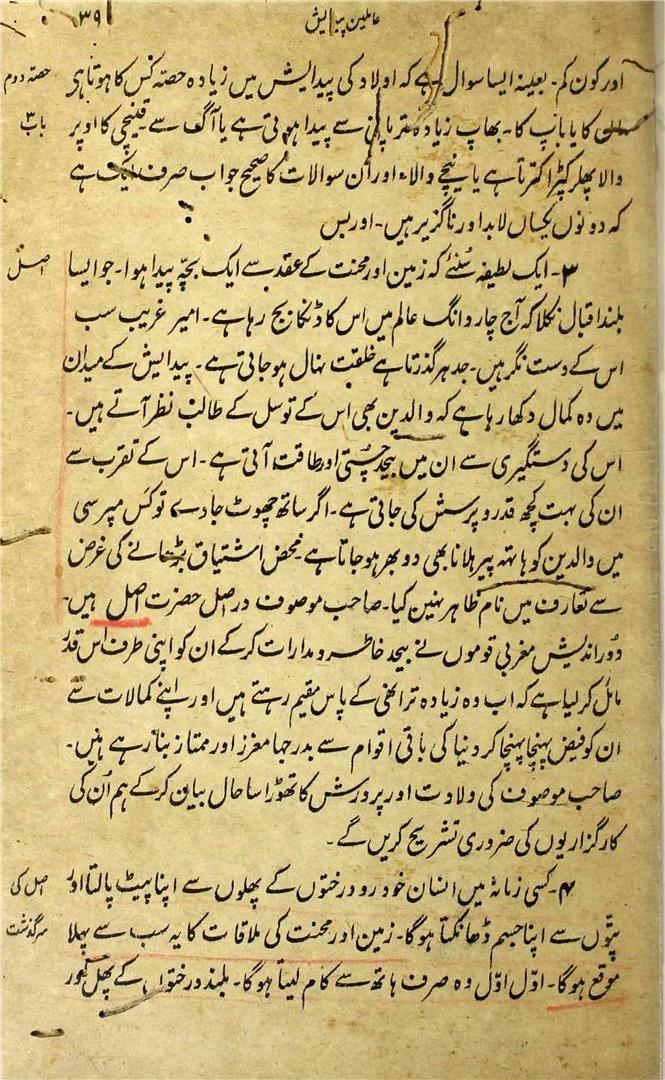 عاملین پیدایش
۳۹
حصہ دوم
باب ۳
اور کون کم۔ بعینہ ایسا سوال ہے کہ اولاد کی پیدایش میں زیادہ حصہ کس کا ہوتا ہی
ماں کا یا باپ کا۔ بھاپ زیادہ تر پانی سے پیدا ہوتی ہے یا آگ سے قینچی کا اوپر
والا پھل کپڑا کترتا ہے یا نیچے والا۔ اور اُن سوالات کا صحیح جواب صرف ایک ہے
کہ دونوں یکساں لابد اور ناگزیر ہیں۔ اور بس
اصل
۳۔ ایک لطیفہ سُنئے کہ زمین اور محنت کے عقد سے ایک بچّہ پیدا ہوا۔ جو ایسا
بلند اقبال نکلا کہ آج چار دانگ عالم میں اس کا ڈنکا بج رہا ہے۔ امیر غریب سب
اس کے دست نگر ہیں۔ جدہر گذرتا ہے خلقت نہال ہو جاتی ہے۔ پیدایش کے میدان
میں وہ کمال دکھا رہا ہے کہ والدین بھی اس کے توسل کے طالب نظر آتے ہیں۔
اس کی دستگیری سے ان میں بیحد چستی اور طاقت آتی ہے۔ اس کے تقرب سے
ان کی بہت کچھ قدر و پرسش کی جاتی ہے۔ اگر ساتھ چھوٹ جاوے تو کس مپرسی
میں والدین کو ہاتھ پیر ہلانا بھی دوبھر ہو جاتا ہے۔ محض اشتیاق بڑھانے کی غرض
سے تعارف میں نام ظاہر نہیں کیا۔ صاحب موصوف دراصل حضرت اصل ہیں۔
دُور اندیش مغربی قوموں نے بیحد خاطر و مدارات کر کے ان کو اپنی طرف اس قدر
مائل کر لیا ہے کہ اب وہ زیادہ تر انھی کے پاس مقیم رہتے ہیں اور اپنے کمالات سے
ان کو فیض پہنچا پہنچا کر دنیا کی باقی اقوام سے بدرجہا معزز اور ممتاز بنا رہے ہیں۔
صاحب موصوف کی ولادت اور پرورش کا تھوڑا سا حال بیان کر کے ہم اُن کی
کارگزاریوں کی ضروری تشریح کریں گے۔
اصل کی
سرگذشت
۴۔ کسی زمانہ میں انسان خود رو درختوں کے پھلوں سے اپنا پیٹ پالتا اور
پتّوں سے اپنا جسم ڈھانکتا ہوگا۔ زمین اور محنت کی ملاقات کا یہ سب سے پہلا
موقع ہوگا۔ اوّل اوّل وہ صرف ہاتھ سے کام لیتا ہوگا۔ بلند درختوں کے پھل